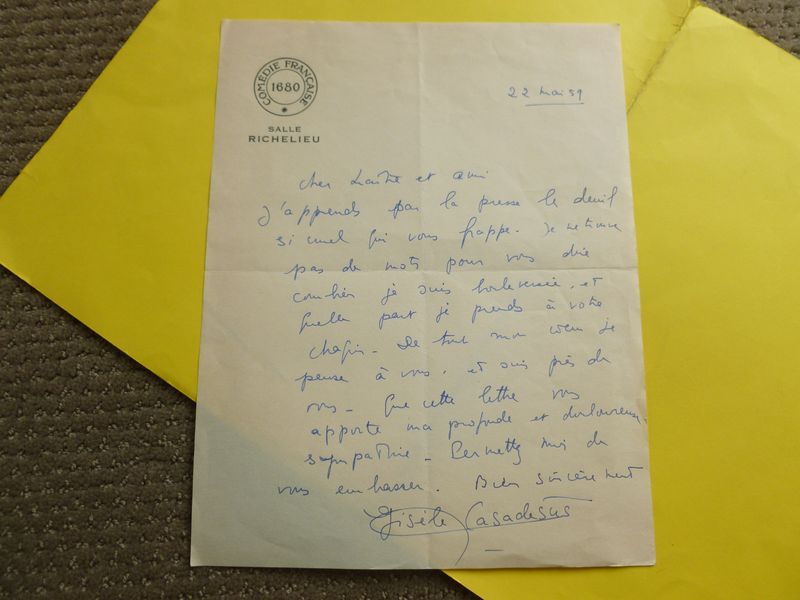 COMÉDIE FRANÇAISE
1680
SALLE
RICHELIEU
22 mai 59
Cher Maître et ami
J'apprends par la presse le deuil
si cruel qui vous frappe. Je ne trouve
pas de mots pour vous dire
combien je suis bouleversée, et
quelle part je prends à votre
chagrin. De tout mon coeur je
pense à vous, et suis près de
vous. Que cette lettre vous
apporte ma profonde et douloureuse
sympathie. Permettez moi de
vous embrasser. Bien sincèrement
Gisèle Casadesus